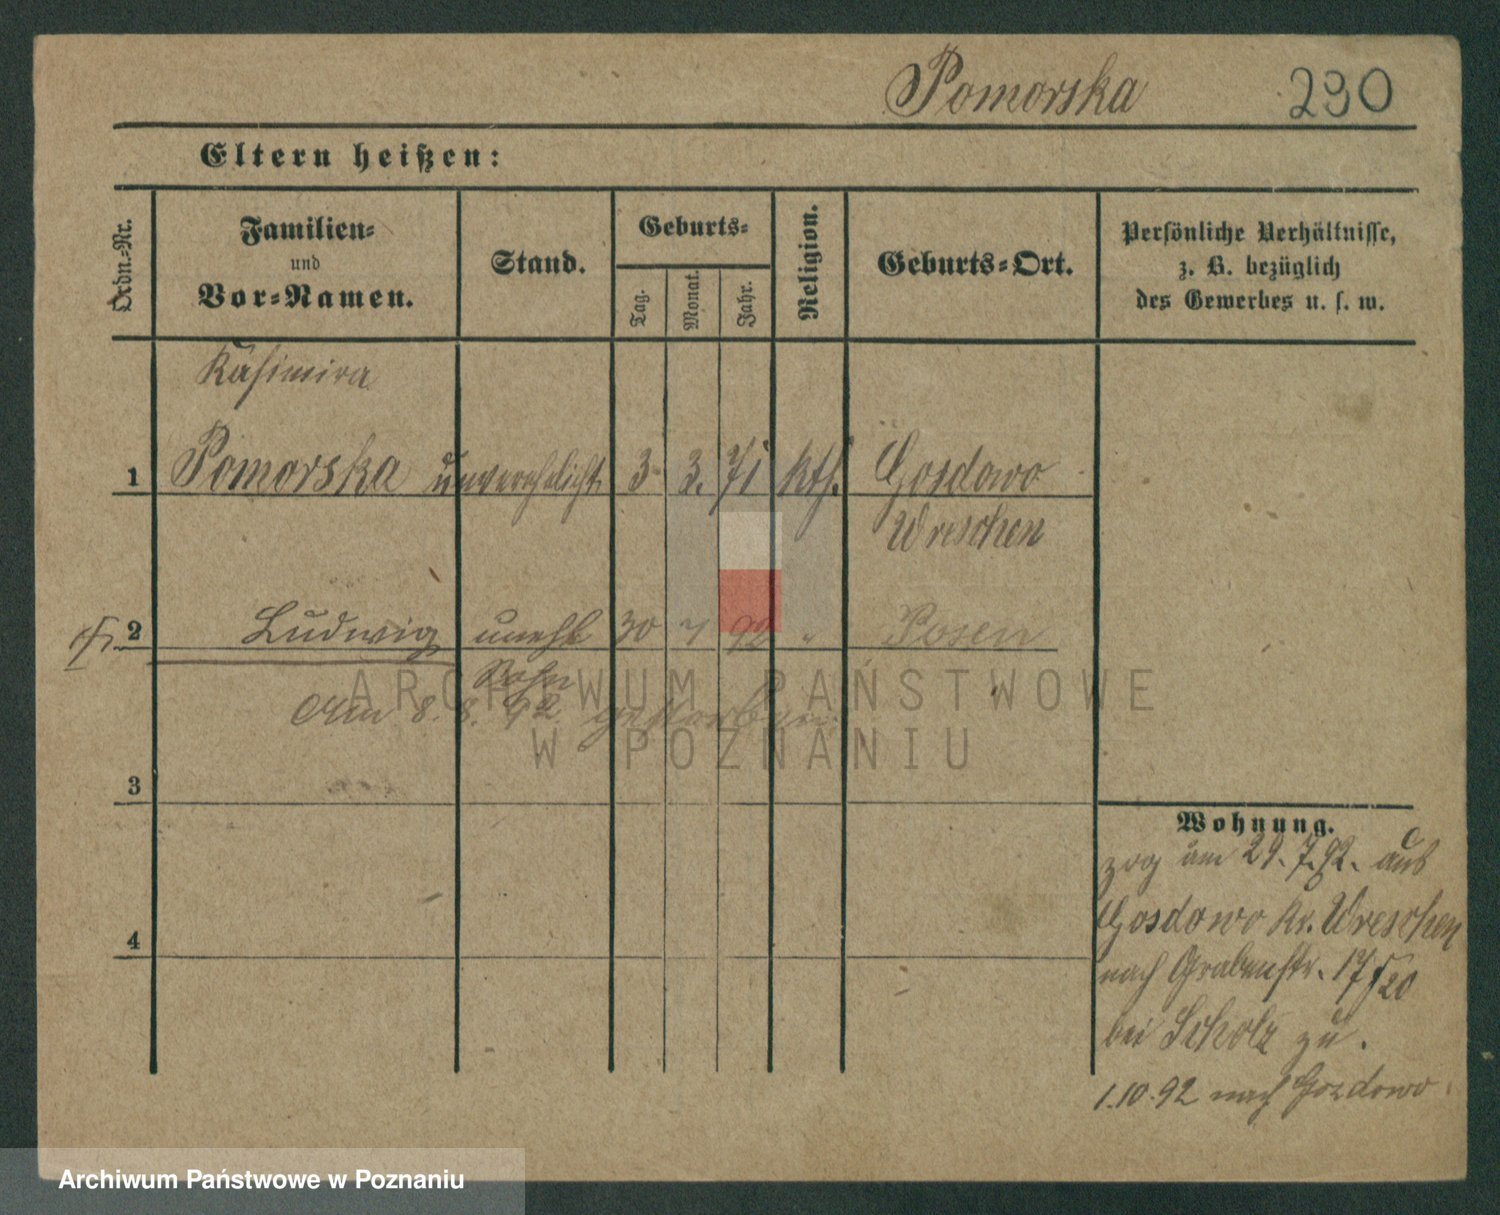 Pomorska 290
Eltern heißen:
Ordn.-Nr.
Familien-
und
Vor-Namen.
Stand.
Geburts-
Tag.
Monat.
Jahr.
Religion.
Geburts-Ort.
Persönliche Verhältnisse,
z. B. bezüglich
des Gewerbes u. s. w.
Kasimira
1 Pomorska unverehelicht 3. 3. 71 kth. Gosdowo
Wreschen
2 Ludwig unehl 30 7 92 " Posen
Sohn
Am 8. 8. 92 gestorben
3
4
Wohnung.
zog am 29. 7. 92. aus
Gosdowo Kr. Wreschen
nach Grabenstr. 17/20
bei Scholz zu.
1.10.92 nach Gozdowo
ARCHIWUM PAŃSTWOWE
W POZNANIU
Archiwum Państwowe w Poznaniu